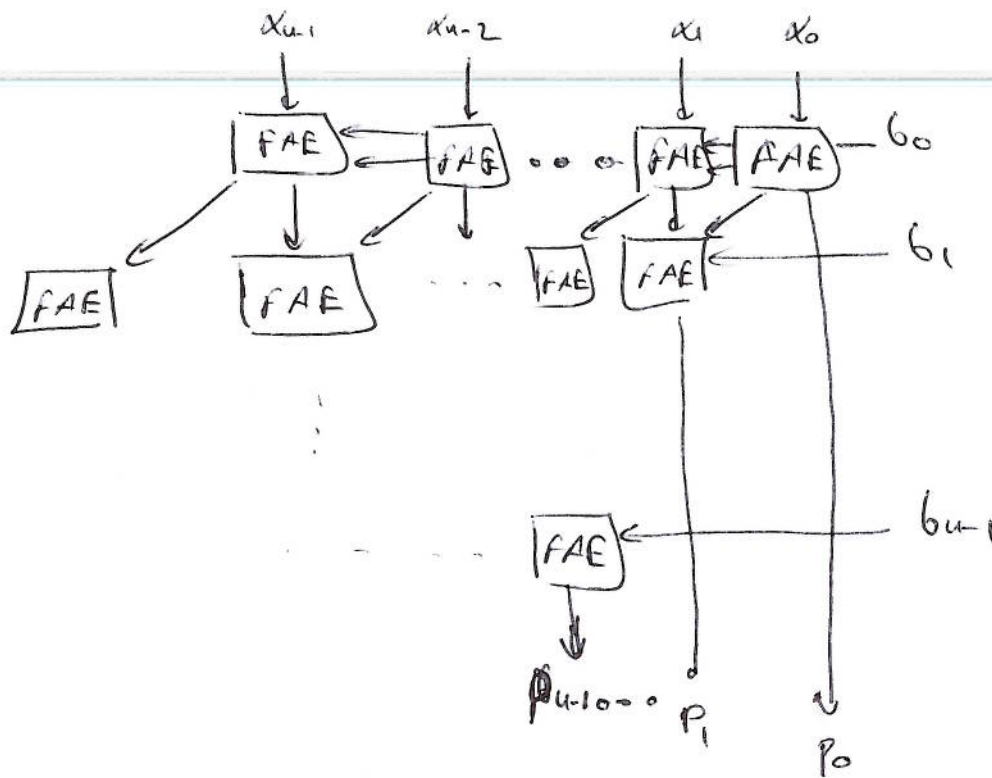 xn-1 xn-2 x1 x0
FAE FAE ... FAE FAE b0
FAE FAE .... FAE FAE b1
FAE bn-1
Pn-1 ... P1 P0